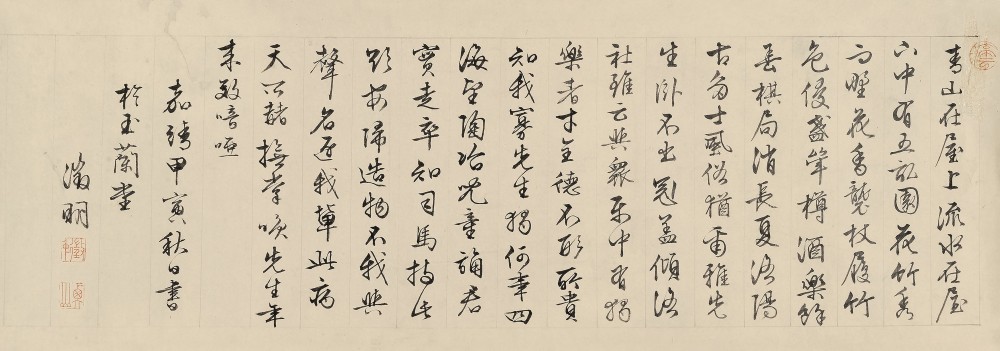 青山在屋上流水在屋
下中有五畝園花竹秀
而野花香襲杖屨竹
色侵盞斝樽酒樂餘
春棋局消長夏洛陽
古多士風俗猶爾雅先
生臥不出冠蓋傾洛
社雖云與衆樂中有獨
樂者才全德不形所貴
知我寡先生獨何事四
海望陶冶兒童誦君
實走卒知司馬持此
欲安歸造物不我與
聲名逐我輩此病
天所赭撫掌笑先生年
來效喑啞
嘉靖甲寅秋日書
於玉蘭堂
徵明